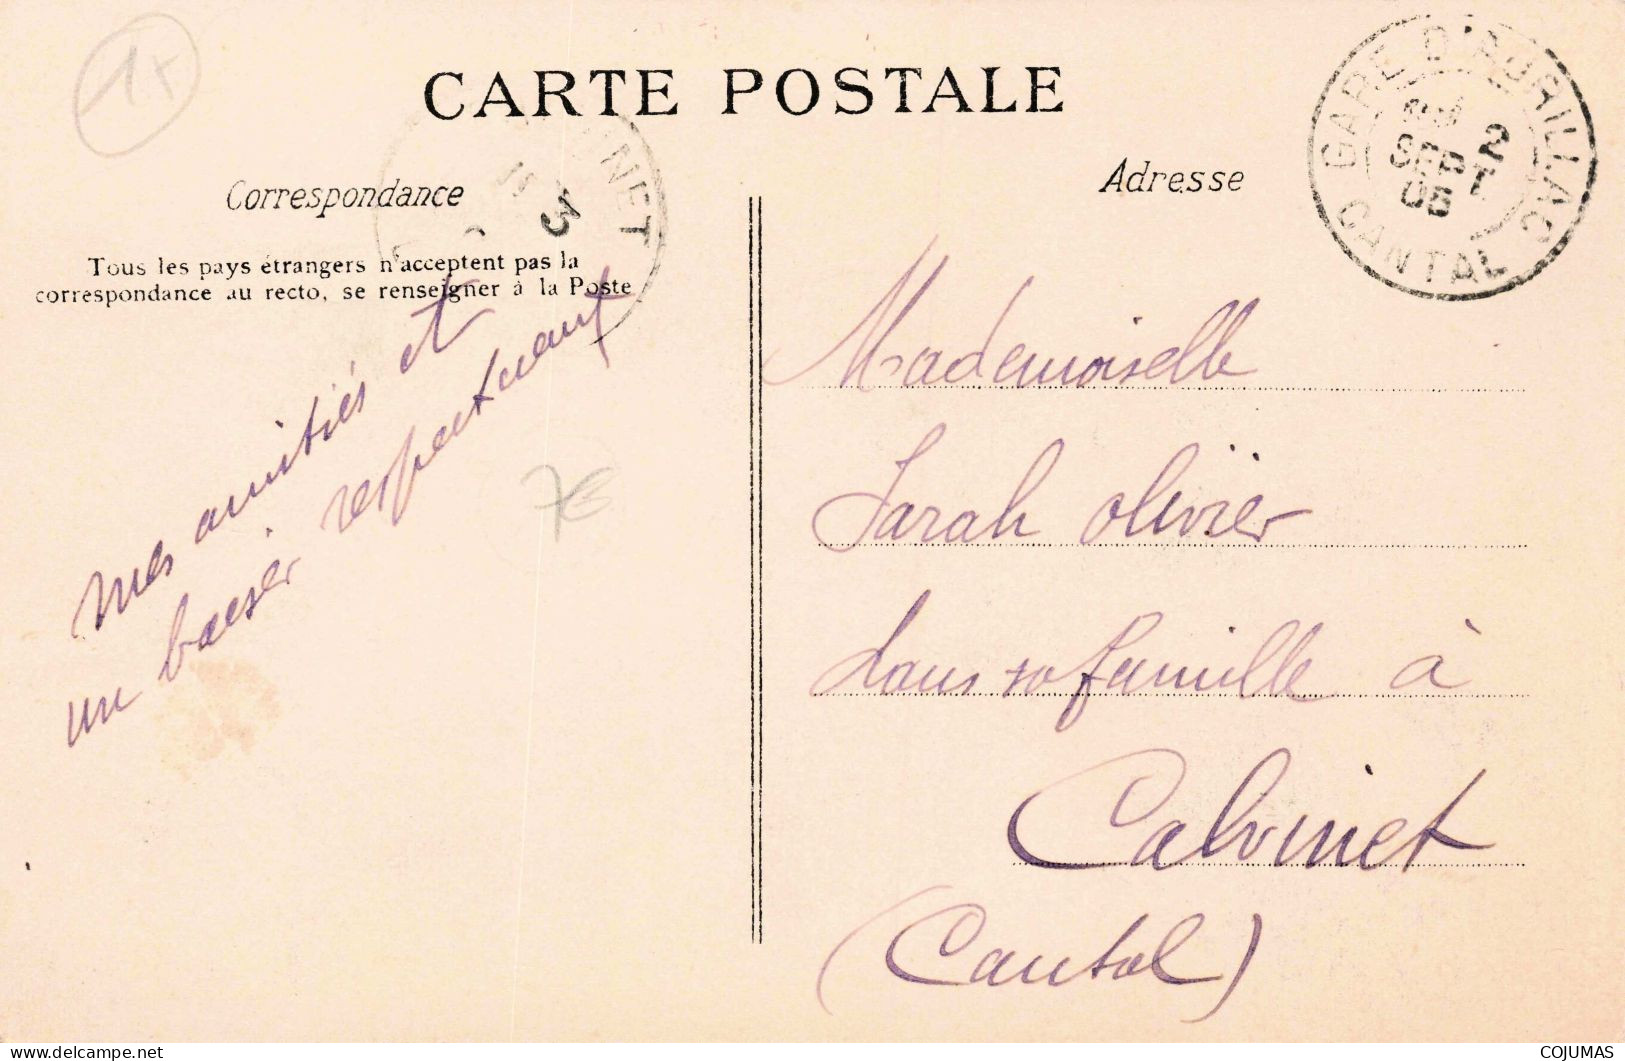 1F
CARTE POSTALE
GARE D'AURILLAC
2
SEPT
CANTAL
NET
3
Correspondance
Tous les pays étrangers n'acceptent pas la
correspondance au recto, se renseigner à la Poste
mes amitiés et
un baiser respectueux
7€
Adresse
Mademoiselle
Sarah Olivier
dans sa famille à
Calvinet
(Cantal)
www.delcampe.net
COJUMAS